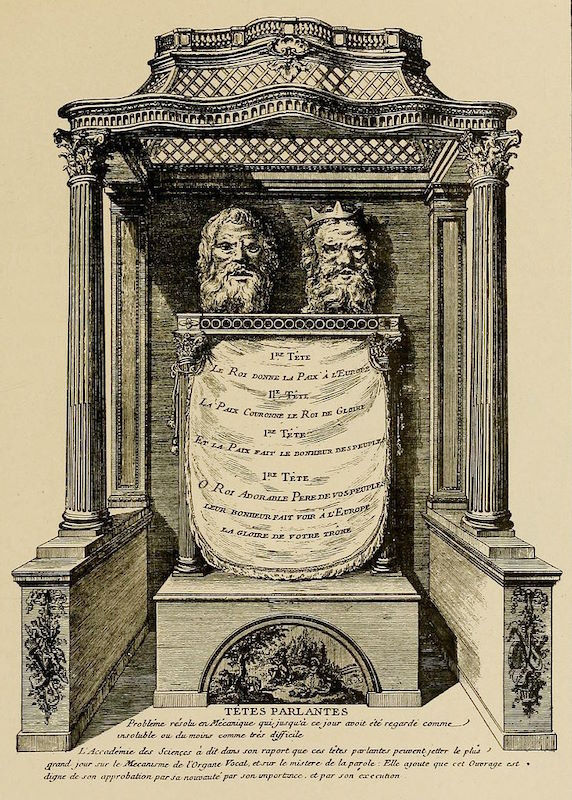 1RE TÊTE
LE ROI DONNE LA PAIX À L'EUROPE
IIE TÊTE
LA PAIX COURONNE LE ROI DE GLOIRE
1RE TÊTE
ET LA PAIX FAIT LE BONHEUR DES PEUPLES
1RE TÊTE
O ROI ADORABLE PERE DE VOS PEUPLES
LEUR BONHEUR FAIT VOIR À L'EUROPE
LA GLOIRE DE VOTRE TRONE
TÊTES PARLANTES
Problême résolu en Mécanique qui jusqu'à ce jour avoit été regardé comme
insoluble ou du moins comme très difficile
L'Accadémie des Sciences à dit dans son raport que ces têtes parlantes peuvent jetter le plus
grand jour sur le Mecanisme de l'Organe Vocal, et sur le mistere de la parole: Elle ajoute que cet Ouvrage est
digne de son approbation par sa nouvauté par son importance, et par son execution.